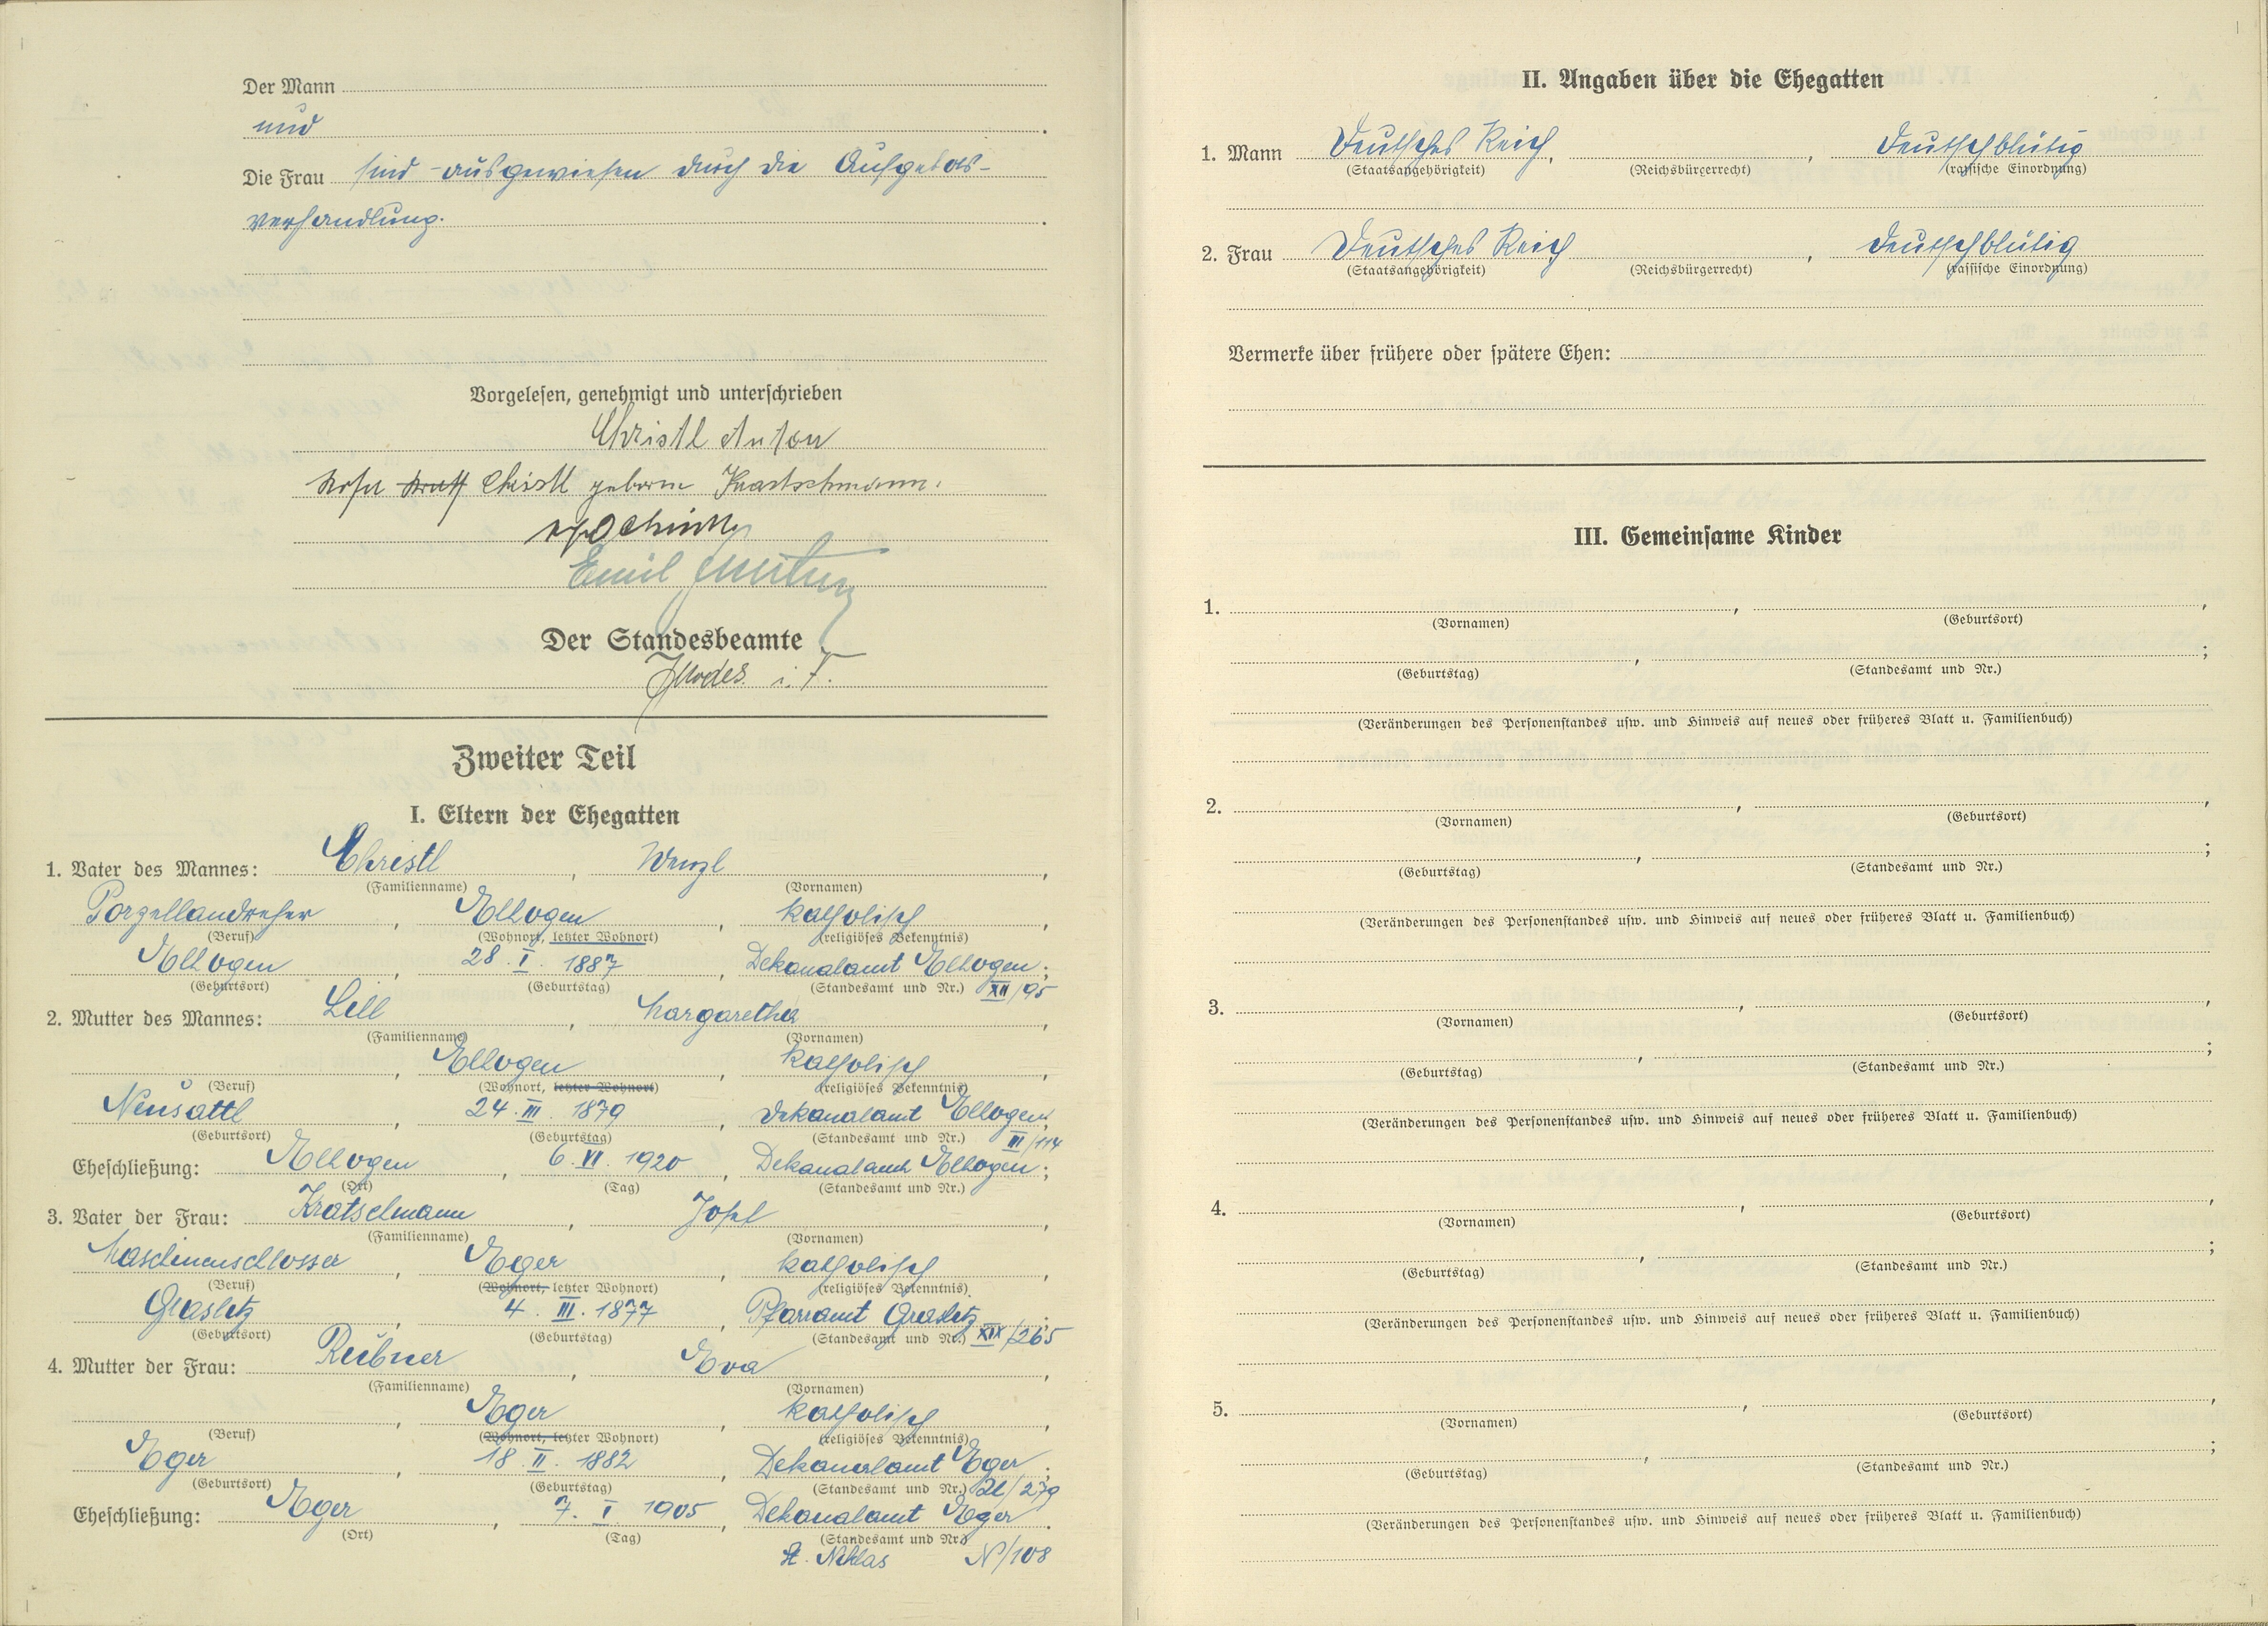 Der Mann
und
Die Frau sind ausgewiesen durch die Aufgebots-
verhandlung.
Vorgelesen, genehmigt und unterschrieben
Christl Anton
Rosa Christl geborne Kratschmann.
Emil
Der Standesbeamte
i. V.
Zweiter Teil
I. Eltern der Ehegatten
1. Vater des Mannes: Christl, Wenzl,
(Familienname) (Vornamen)
Porzellandreher, Elbogen, katholisch,
(Beruf) (Wohnort, letzter Wohnort) (religiöses Bekenntnis)
Elbogen, 28. I. 1887, Dekanalamt Elbogen;
(Geburtsort) (Geburtstag) (Standesamt und Nr.) XII/95
2. Mutter des Mannes: Lill, Margaretha,
(Familienname) (Vornamen)
, Elbogen, katholisch,
(Beruf) (Wohnort, letzter Wohnort) (religiöses Bekenntnis)
Neusattl, 24. III. 1879, Dekanalamt Elbogen,
(Geburtsort) (Geburtstag) (Standesamt und Nr.) III/114
Eheschließung: Elbogen, 6. VI. 1920, Dekanalamt Elbogen;
(Ort) (Tag) (Standesamt und Nr.)
3. Vater der Frau: Kratschmann, Josef,
(Familienname) (Vornamen)
Maschinenschlosser, Eger, katholisch,
(Beruf) (Wohnort, letzter Wohnort) (religiöses Bekenntnis)
Graslitz, 4. III. 1877, Pfarramt Graslitz;
(Geburtsort) (Geburtstag) (Standesamt und Nr.) XIX/265
4. Mutter der Frau: Reibner, Eva,
(Familienname) (Vornamen)
, Eger, katholisch,
(Beruf) (Wohnort, letzter Wohnort) (religiöses Bekenntnis)
Eger, 18. II. 1882, Dekanalamt Eger;
(Geburtsort) (Geburtstag) (Standesamt und Nr.) 21/279
Eheschließung: Eger, 7. I. 1905, Dekanalamt Eger.
(Ort) (Tag) (Standesamt und Nr.)
St. Niklas N/108
II. Angaben über die Ehegatten
1. Mann Deutsches Reich, , deutschblütig
(Staatsangehörigkeit) (Reichsbürgerrecht) (rassische Einordnung)
2. Frau Deutsches Reich , deutschblütig
(Staatsangehörigkeit) (Reichsbürgerrecht) (rassische Einordnung)
Vermerke über frühere oder spätere Ehen:
III. Gemeinsame Kinder
1. , ,
(Vornamen) (Geburtsort)
, ;
(Geburtstag) (Standesamt und Nr.)
(Veränderungen des Personenstandes usw. und Hinweis auf neues oder früheres Blatt u. Familienbuch)
2. , ,
(Vornamen) (Geburtsort)
, ;
(Geburtstag) (Standesamt und Nr.)
(Veränderungen des Personenstandes usw. und Hinweis auf neues oder früheres Blatt u. Familienbuch)
3. , ,
(Vornamen) (Geburtsort)
, ;
(Geburtstag) (Standesamt und Nr.)
(Veränderungen des Personenstandes usw. und Hinweis auf neues oder früheres Blatt u. Familienbuch)
4. , ,
(Vornamen) (Geburtsort)
, ;
(Geburtstag) (Standesamt und Nr.)
(Veränderungen des Personenstandes usw. und Hinweis auf neues oder früheres Blatt u. Familienbuch)
5. , ,
(Vornamen) (Geburtsort)
, ;
(Geburtstag) (Standesamt und Nr.)
(Veränderungen des Personenstandes usw. und Hinweis auf neues oder früheres Blatt u. Familienbuch)